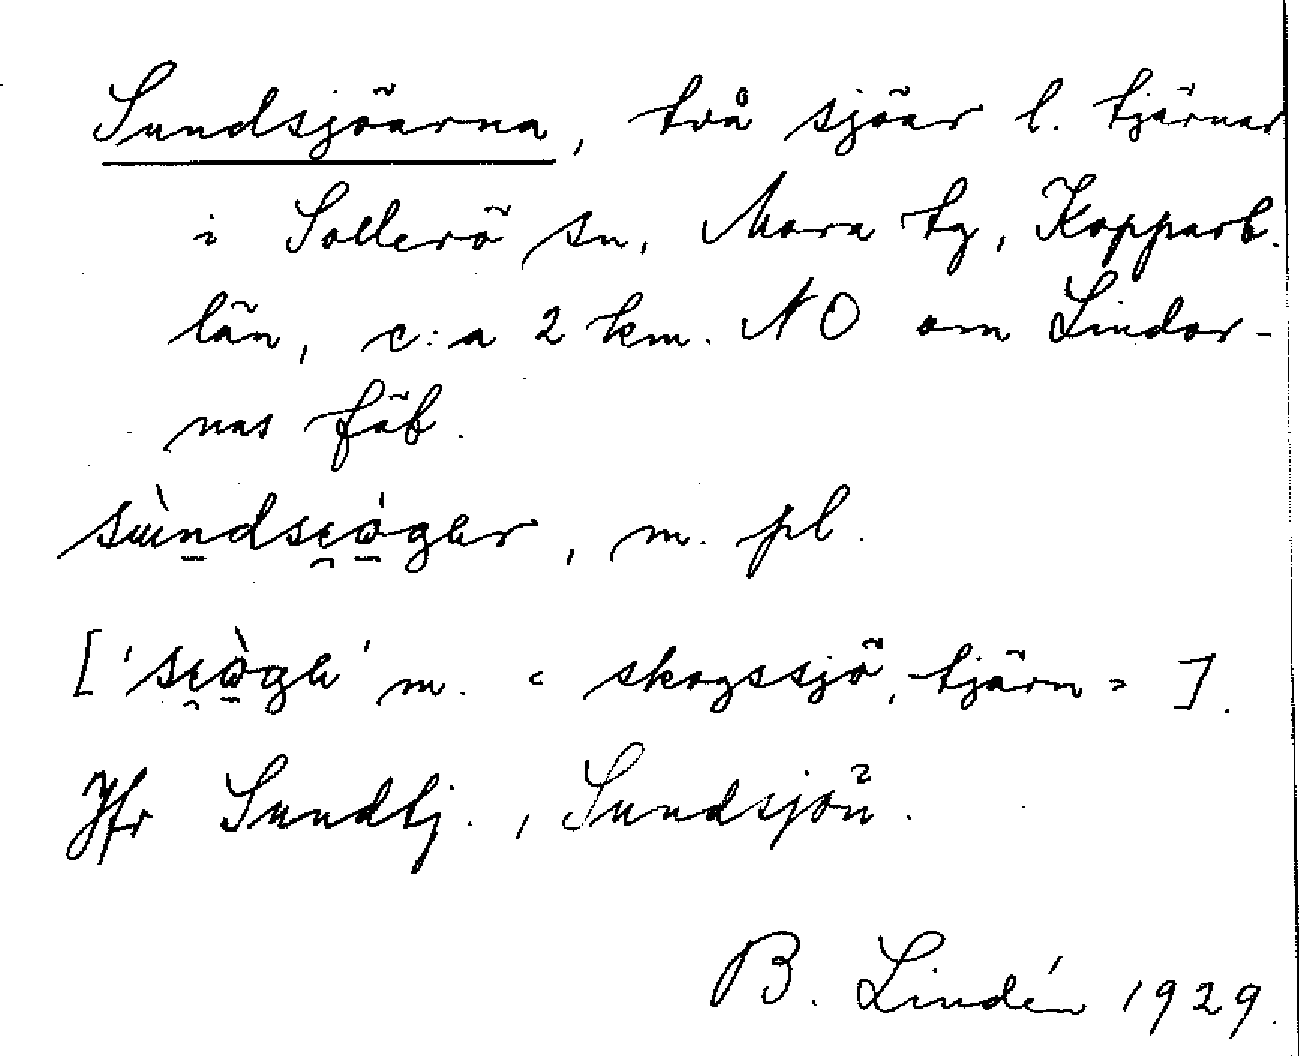 Sundsjöarna, två sjöar l. tjärnar
i Sollerö sn, Mora tg, Kopparb.
län, c:a 2 km. NO om Lindor-
nas fäb.
m. pl.
m. "skogssjö, tjärn" ].
Jfr Sundtj., Sundsjön.
B. Lindén 1929.